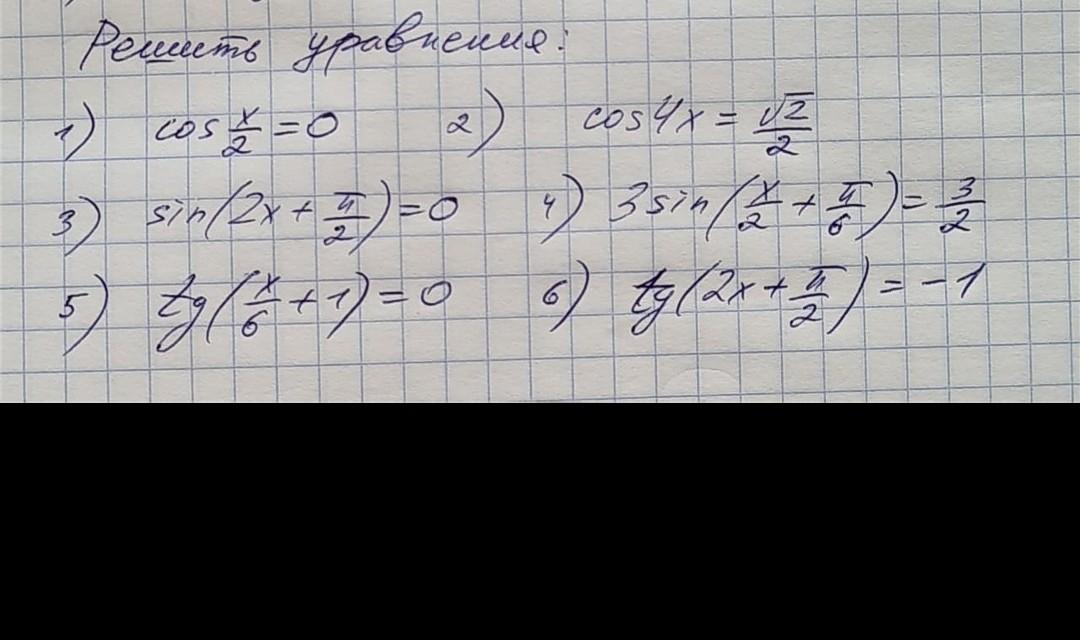 Решить уравнения:
1) cos x/2 = 0 2) cos4x = √2/2
3) sin(2x + π/2) = 0 4) 3sin(x/2 + π/6) = 3/2
5) tg(x/6 + 1) = 0 6) tg(2x + π/2) = -1